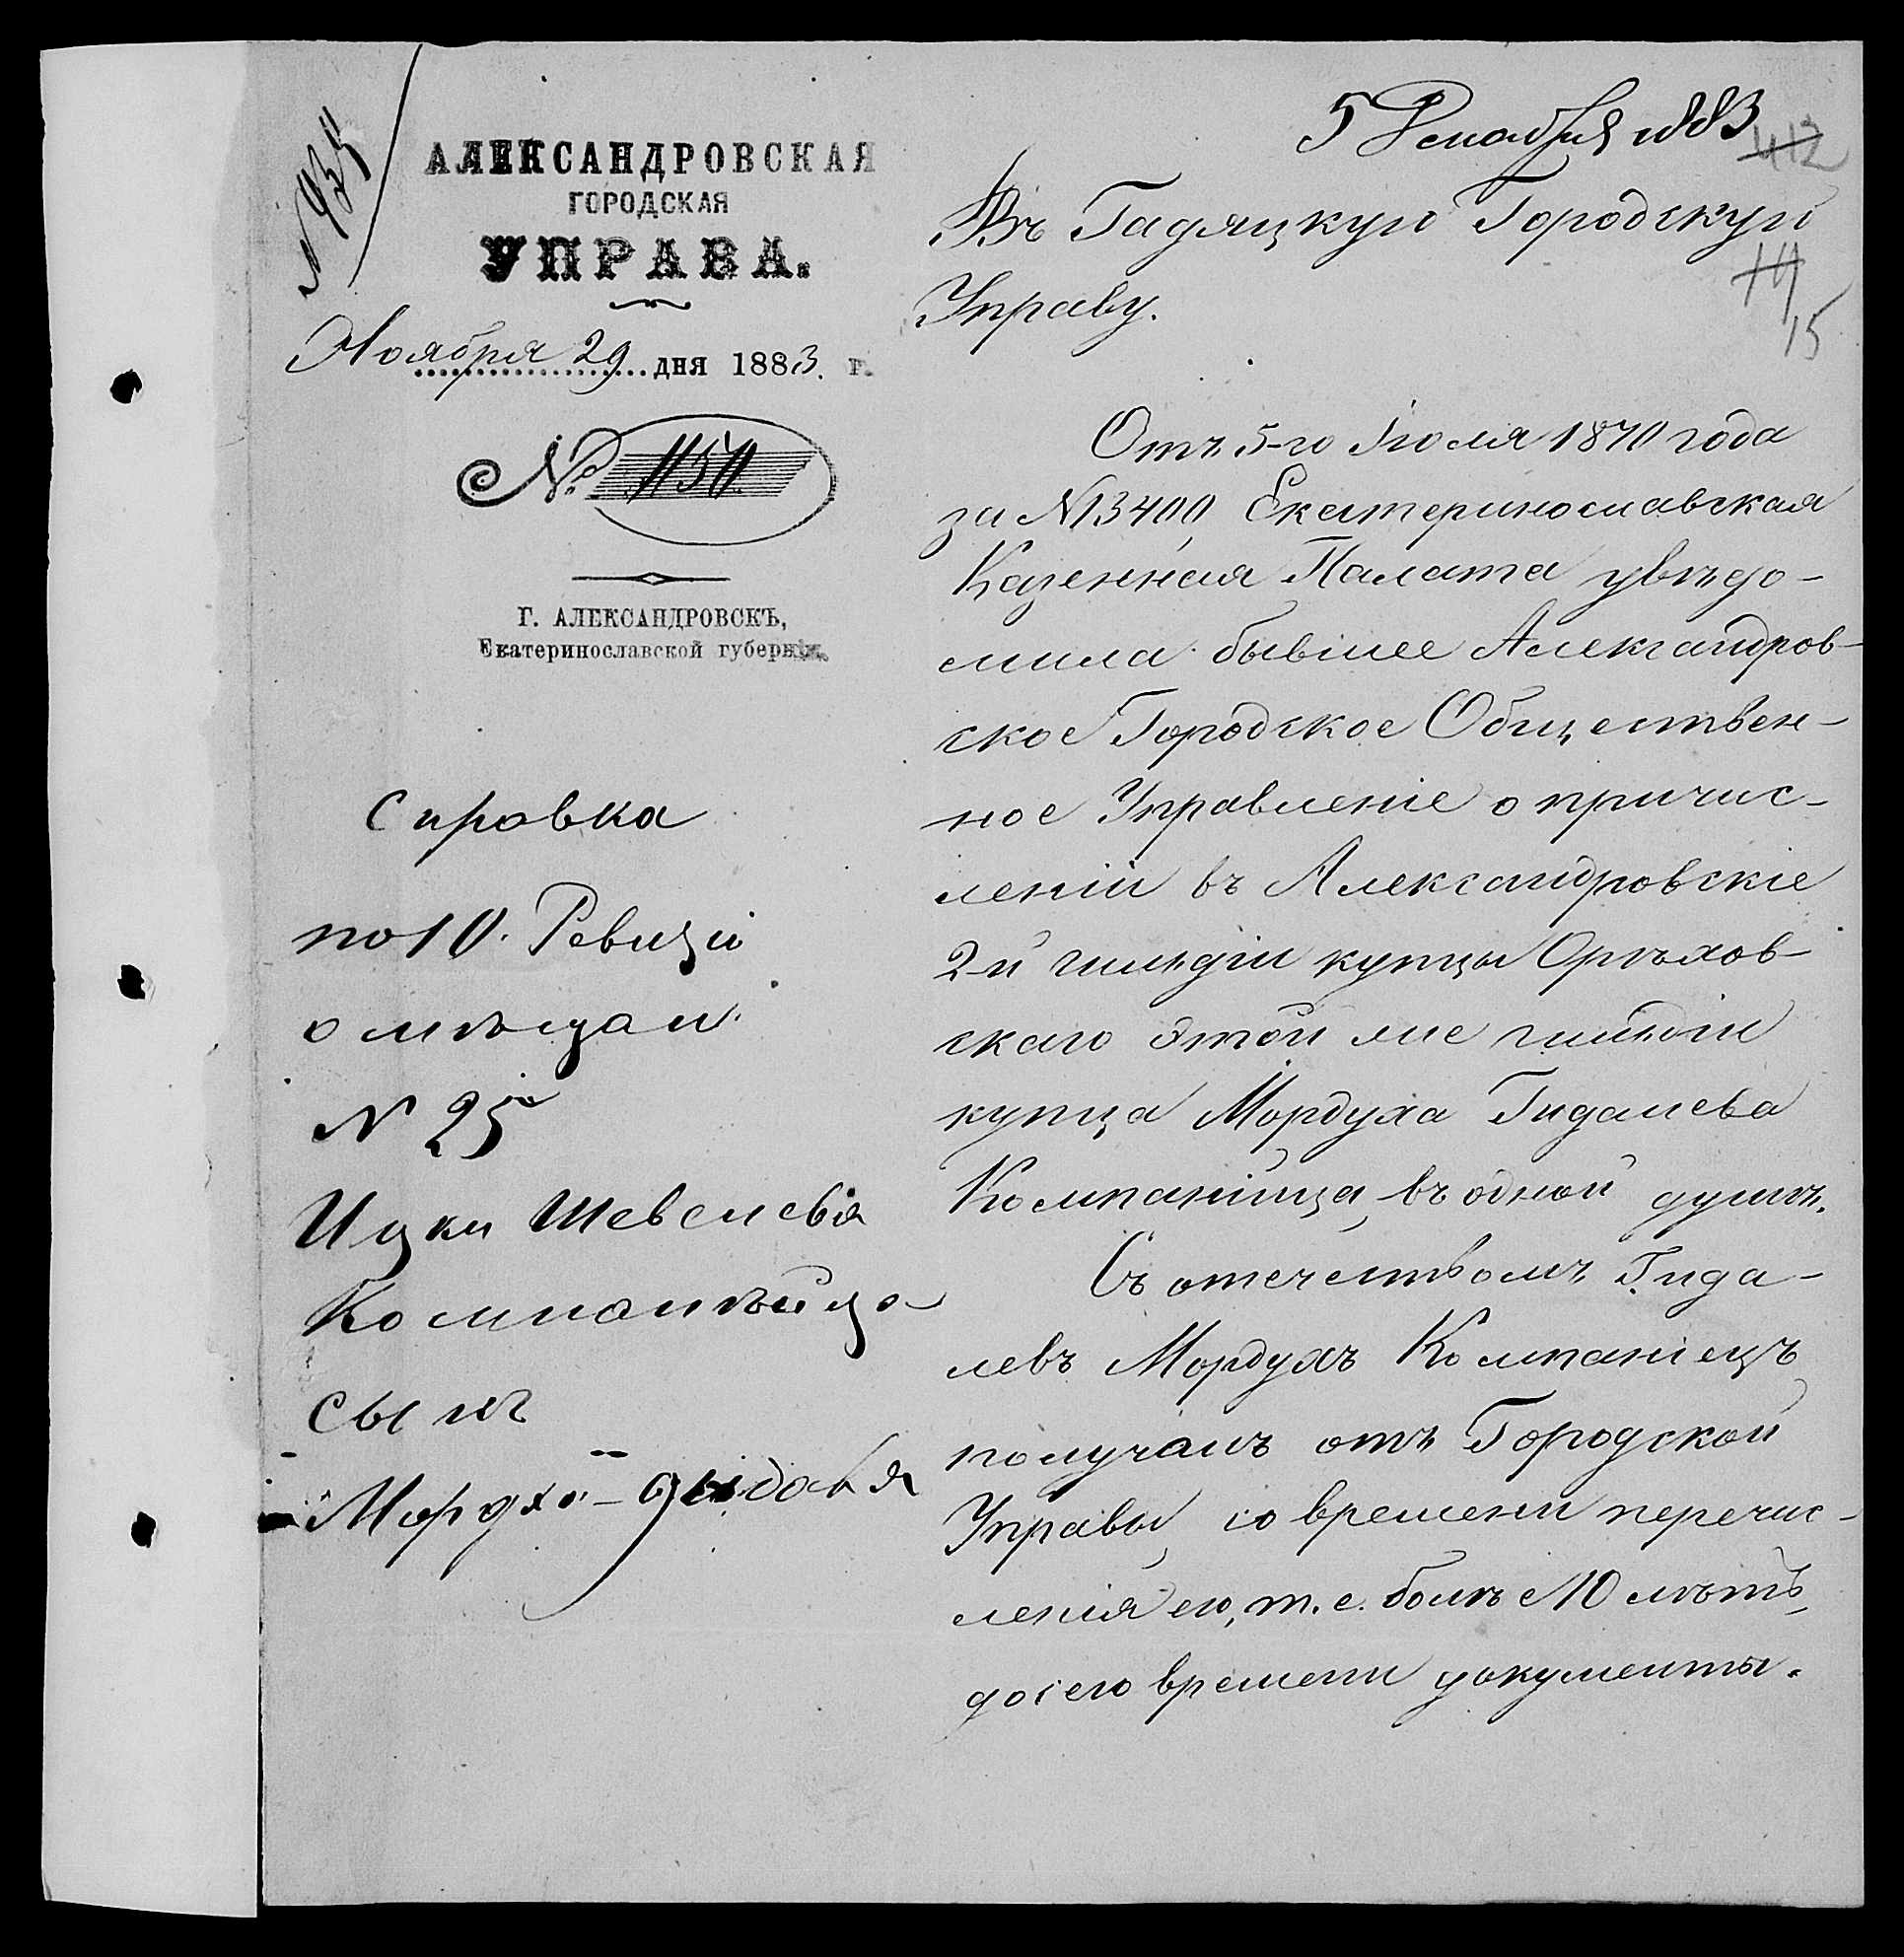 № 935
АЛЕКСАНДРОВСКАЯ
ГОРОДСКАЯ
УПРАВА.
Ноября 29 дня 1883. г.
№ 1150
Г. АЛЕКСАНДРОВСКЪ,
Екатеринославской губерніи.
Справка
по 10. Ревизіи
о мѣщан.
N 25
Ицки Шевелева
Компанѣйца
сынъ
Мордхо-
5 Декабря 1883
412
Въ Гадяцкую Городскую
Управу.
14
15
Отъ 5-го Іюля 1870 года
за № 3400, Екатеринославская
Казенная Палата увѣдо-
мила бывшее Александров-
ское Городское Обществен-
ное Управленіе о причис-
леніи въ Александровскіе
2-й гильдіи купцы Орѣхов-
скаго этой же гильдіи
купца Мордуха Гидалева
Компанійца, въ одной душѣ.
Съ отечествомъ Гида-
левъ Мордухъ Компаніецъ
получалъ отъ Городской
Управы, со времени перечис-
ленія его, т. е. болѣе 10 лѣтъ,
до сего времени документы.